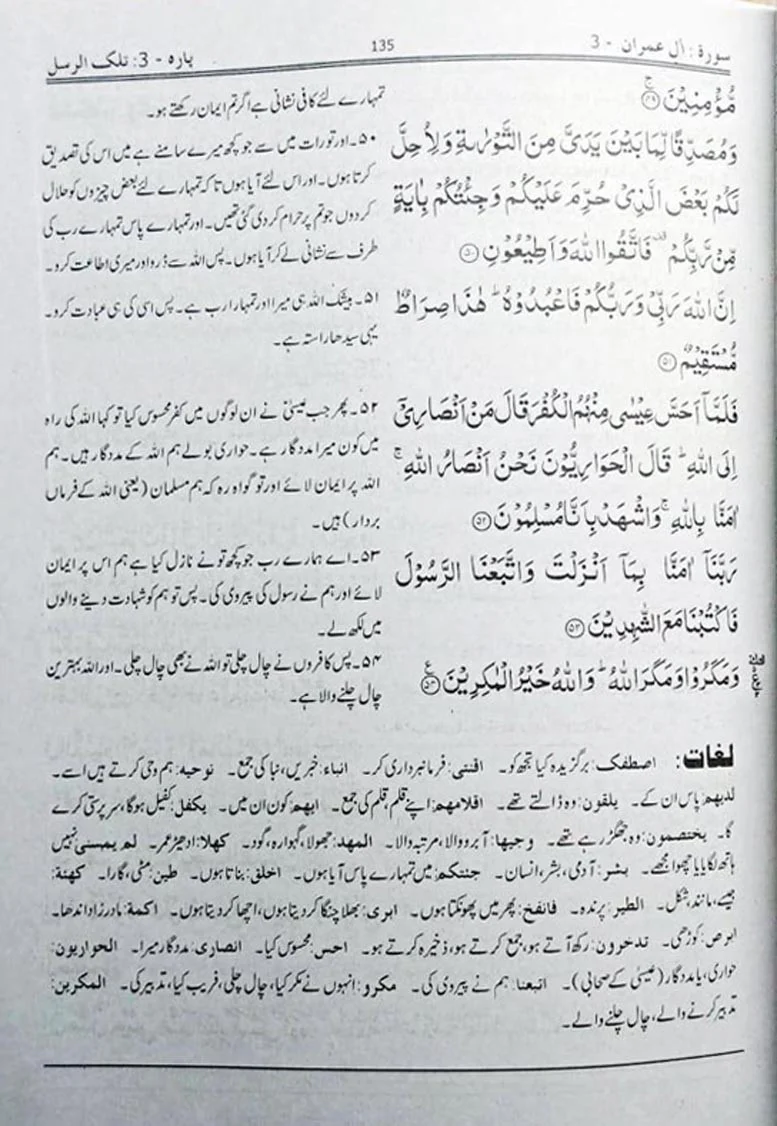 سورة: اٰل عمران - 3
135
پارہ - 3: تلک الرسل
مُّؤْمِنِيْنَ ۚ﴿۴۹﴾
وَمُصَدِّقًا لِّمَا بَيْنَ يَدَيَّ مِنَ التَّوْرٰىةِ وَلِاُحِلَّ
لَكُمْ بَعْضَ الَّذِيْ حُرِّمَ عَلَيْكُمْ وَجِئْتُكُمْ بِاٰيَةٍ
مِّنْ رَّبِّكُمْ ۫ فَاتَّقُوا اللّٰهَ وَاَطِيْعُوْنِ ﴿۵۰﴾
اِنَّ اللّٰهَ رَبِّيْ وَرَبُّكُمْ فَاعْبُدُوْهُ ؕ هٰذَا صِرَاطٌ
مُّسْتَقِيْمٌ ﴿۵۱﴾
فَلَمَّاۤ اَحَسَّ عِيْسٰى مِنْهُمُ الْكُفْرَ قَالَ مَنْ اَنْصَارِيْۤ
اِلَى اللّٰهِ ؕ قَالَ الْحَوَارِيُّوْنَ نَحْنُ اَنْصَارُ اللّٰهِ ۚ
اٰمَنَّا بِاللّٰهِ ۚ وَاشْهَدْ بِاَنَّا مُسْلِمُوْنَ ﴿۵۲﴾
رَبَّنَاۤ اٰمَنَّا بِمَاۤ اَنْزَلْتَ وَاتَّبَعْنَا الرَّسُوْلَ
فَاكْتُبْنَا مَعَ الشّٰهِدِيْنَ ﴿۵۳﴾
وَمَكَرُوْا وَمَكَرَ اللّٰهُ ؕ وَاللّٰهُ خَيْرُ الْمٰكِرِيْنَ ﴿۵۴﴾ ع
تمہارے لئے کافی نشانی ہے اگر تم ایمان رکھتے ہو۔
۵۰۔ اور تورات میں سے جو کچھ میرے سامنے ہے میں اس کی تصدیق
کرتا ہوں۔ اور اس لئے آیا ہوں تا کہ تمہارے لئے بعض چیزوں کو حلال
کردوں جو تم پر حرام کر دی گئی تھیں۔ اور تمہارے پاس تمہارے رب کی
طرف سے نشانی لے کر آیا ہوں۔ پس اللہ سے ڈرو اور میری اطاعت کرو۔
۵۱۔ بیشک اللہ ہی میرا اور تمہارا رب ہے۔ پس اسی کی ہی عبادت کرو۔
یہی سیدھا راستہ ہے۔
۵۲۔ پھر جب عیسیٰؑ نے ان لوگوں میں کفر محسوس کیا تو کہا اللہ کی راہ
میں کون میرا مددگار ہے۔ حواری بولے ہم اللہ کے مددگار ہیں۔ ہم
اللہ پر ایمان لائے اور تو گواہ رہ کہ ہم مسلمان (یعنی اللہ کے فرماں
بردار) ہیں۔
۵۳۔ اے ہمارے رب جو کچھ تو نے نازل کیا ہے ہم اس پر ایمان
لائے اور ہم نے رسول کی پیروی کی۔ پس تو ہم کو شہادت دینے والوں
میں لکھ لے۔
۵۴۔ پس کافروں نے چال چلی تو اللہ نے بھی چال چلی۔ اور اللہ بہترین
چال چلنے والا ہے۔
لغات: اصطفک: برگزیدہ کیا تجھ کو۔ اقنتی: فرمانبرداری کر۔ انباء: خبریں، نبا کی جمع۔ نوحیہ: ہم وحی کرتے ہیں اسے۔
لدیھم: پاس ان کے۔ یلقون: وہ ڈالتے تھے۔ اقلامھم: اپنے قلم، قلم کی جمع۔ ایھم: کون ان میں۔ یکفل: کفیل ہوگا، سرپرستی کرے
گا۔ یختصمون: وہ جھگڑ رہے تھے۔ وجیھا: آبرو والا، مرتبہ والا۔ المھد: جھولا، گہوارہ، گود۔ کھلا: ادھیڑ عمر۔ لم یمسنی: نہیں
ہاتھ لگایا یا چھوا مجھے۔ بشر: آدمی، بشر، انسان۔ جئتکم: میں تمہارے پاس آیا ہوں۔ اخلق: بناتا ہوں۔ طین: مٹی، گارا۔ کھئة:
جیسے، مانند، شکل۔ الطیر: پرندہ۔ فانفخ: پھر میں پھونکتا ہوں۔ ابری: بھلا چنگا کر دیتا ہوں، اچھا کر دیتا ہوں۔ اکمة: مادرزاد اندھا۔
ابرص: کوڑھی۔ تدخرون: رکھ آتے ہو، جمع کرتے ہو، ذخیرہ کرتے ہو۔ احس: محسوس کیا۔ انصاری: مددگار میرا۔ الحواریون:
حواری، یا مددگار (عیسیٰ کے صحابی)۔ اتبعنا: ہم نے پیروی کی۔ مکرو: انہوں نے مکر کیا، چال چلی، فریب کیا، تدبیر کی۔ المکرین:
تدبیر کرنے والے، چال چلنے والے۔